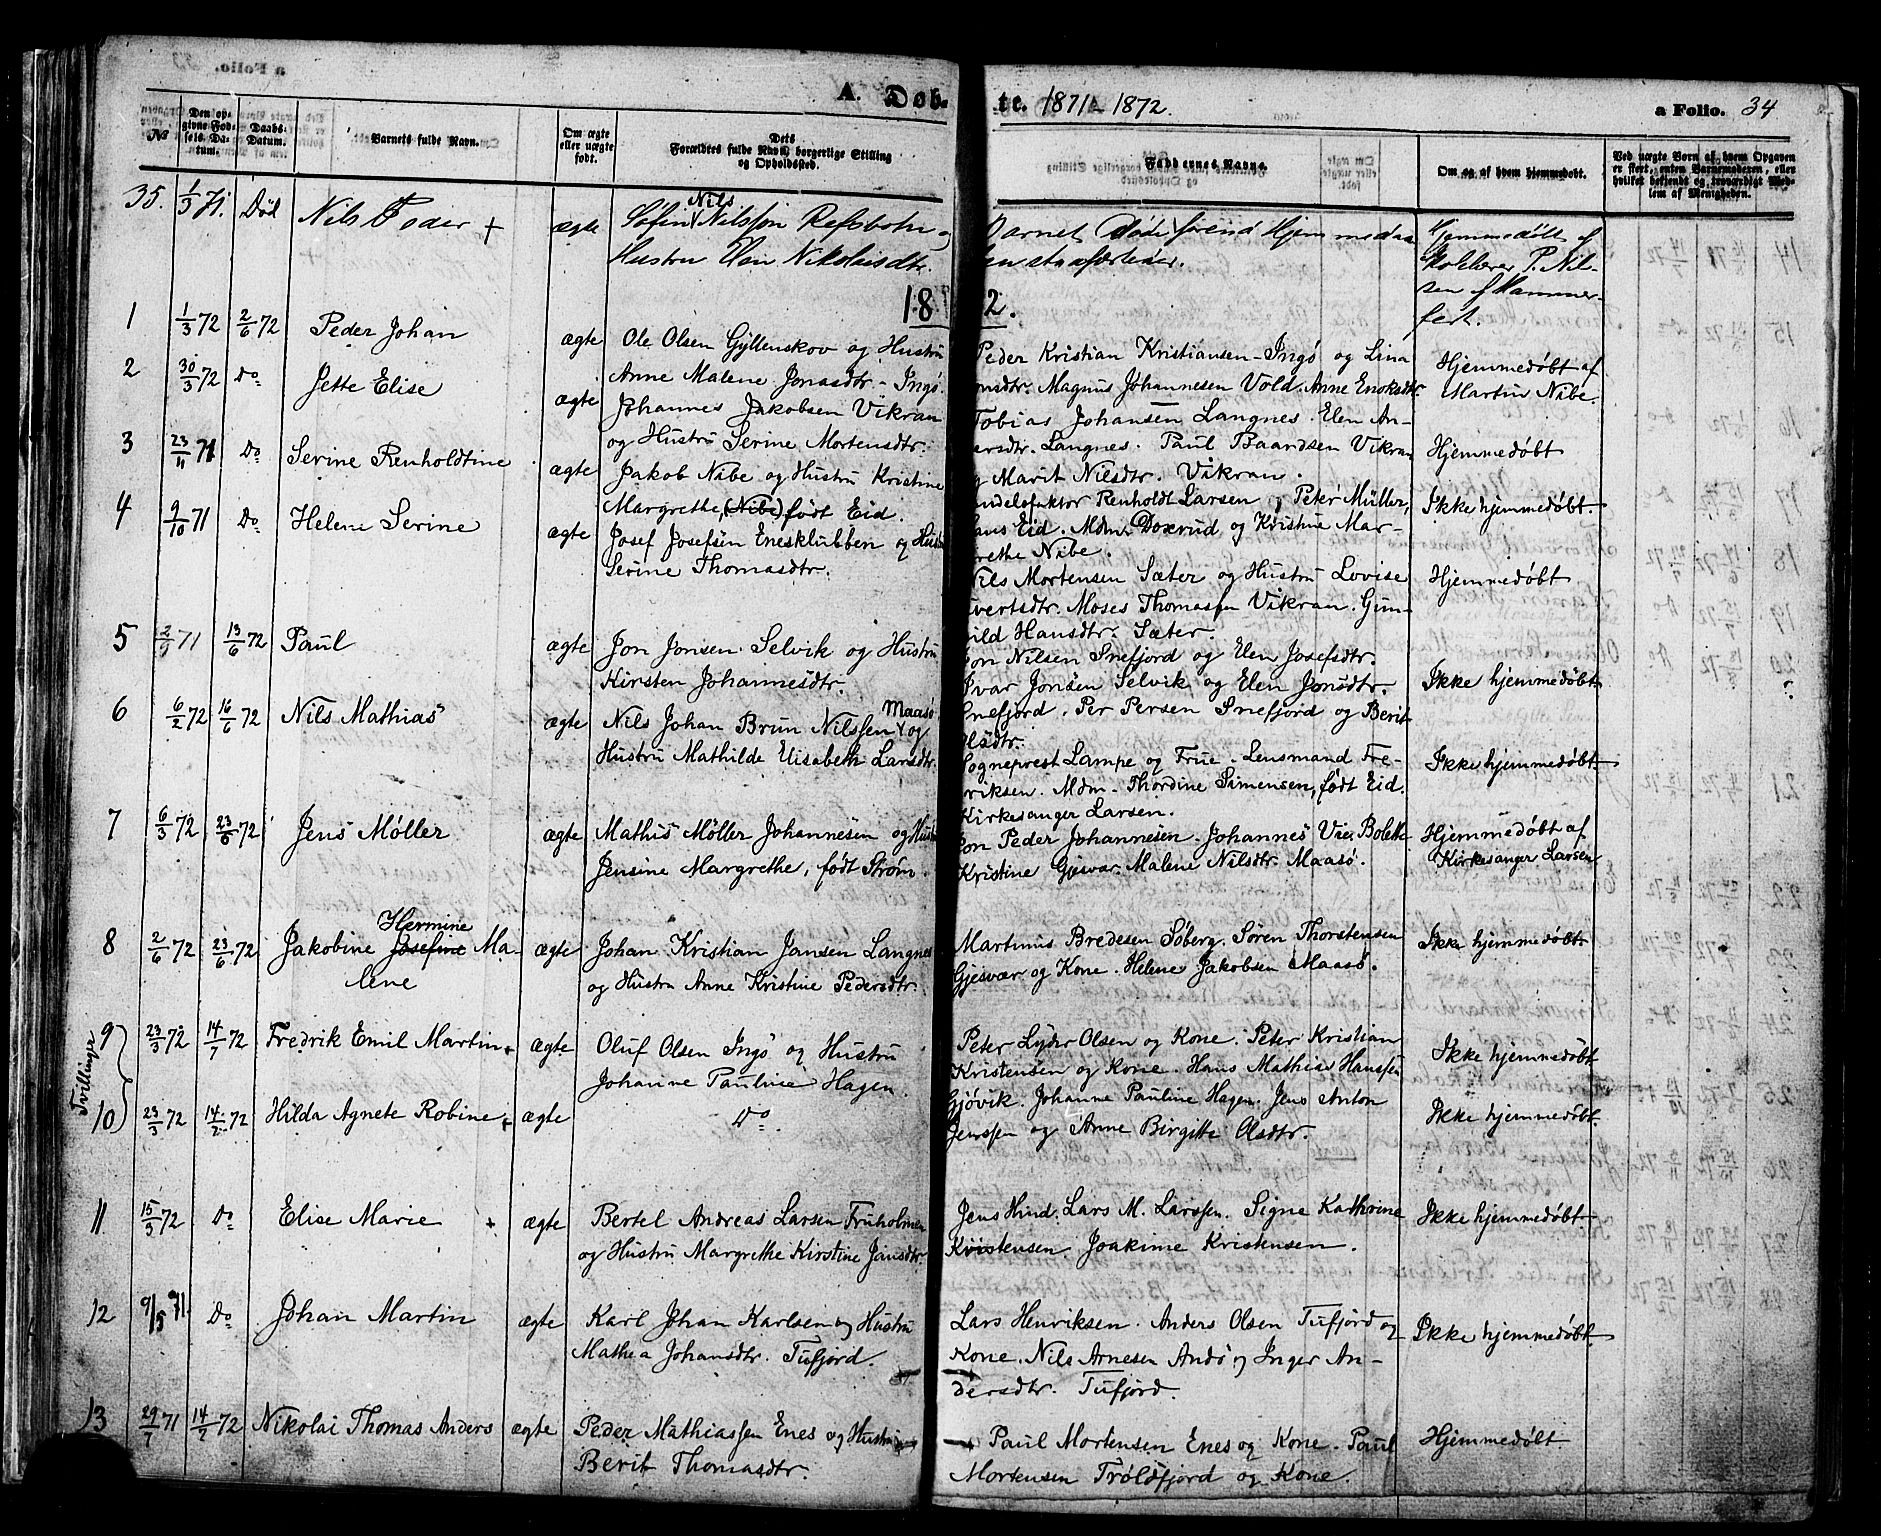 A. Døb-
te. 1871 & 1872.
a Folio. 34
No
Den opgivne Fødsels-Datum.
Daabs-Datum.
Barnets fulde Navn.
Om ægte eller uægte født.
Dets Forældres fulde Navn, borgerlige Stilling og Opholdsted.
Faddernes Navne.
Om og af hvem hjemmedøbt.
Ved uægte Børn af hvem Opgaven er skeet, enten Barnemoderen, eller hvilket bekjendt og troværdigt Medlem af Menigheden.
35. 1/5 71. Død Nils Peder + ægte
Nils
Søfen Nilssøn Refsbotn og
Hustru Elen Nikolaisdtr.
Barnet døde førend Hjemmedaa-
ben stadfæstedes.
Hjemmedøbt af
Skolelærer P. Nil-
sen af Hammer-
fest.
1872.
1 1/3 72 2/6 72 Peder Johan ægte
Ole Olsen Gyllenskov og Hustru
Anne Malene Jonasdtr. Ingø.
Peder Kristian Kristiansen Ingø og Lina
onsdtr. Magnus Johannesen Vold. Anne Enoksdtr.
Hjemmedøbt af
Martin Nibe.
2 30/3 72 Do Jette Elise ægte
Johannes Jakobsen Vikran
og Hustru Serine Mortensdtr.
Tobias Johansen Langnes. Elen An-
ersdtr. Langnes. Paul Baardsen Vikran
og Marit Nilsdtr. Vikran.
Hjemmedøbt
3 23/11 71 Do Serine Renholdtine ægte
Jakob Nibe og Hustru Kristine
Margrethe, (Nibe) født Eid.
andelsfaktor Renholdt Larsen og Peter Müller,
ans Eid. Mdm. Doxrud og Kristine Mar-
grethe Nibe.
Ikke hjemmedøbt
4 9/10 71 Do Helene Serine ægte
Josef Josefsen Enesklubben og Hustru
Serine Thomasdtr.
Nils Mortensen Sæter og Hustru Lovise
Evertsdtr. Moses Thomassen Vikran. Gun-
hild Hansdtr. Sæter.
Hjemmedøbt
5 2/9 71 13/6 72 Paul ægte
Jon Jonsen Selvik og Hustru
Kirsten Johannesdtr.
Jon Nilsen Snefjord og Elen Josefsdtr.
Ivar Jonsen Selvik og Elen Jonsdtr.
Snefjord. Per Persen Snefjord og Berit
Olsdtr.
Ikke hjemmedøbt
6 6/2 72 16/6 72 Nils Mathias ægte
Maasø
Nils Johan Brun Nilssen og
Hustru Mathilde Elisabeth Larsdtr.
Sogneprest Lampe og Frue. Lensmand Fre-
driksen. Mdm. Thordine Simensen, født Eid.
Kirkesanger Larsen.
Ikke hjemmedøbt
7 6/3 72 23/6 72 Jens Møller ægte
Mathis Møller Johannesen og Hustru
Jensine Margrethe, født Strøm.
Jon Peder Johannesen. Johannes Vie. Bolette
Kristine Gjesvær. Malene Nilsdtr. Maasø.
Hjemmedøbt af
Kirkesanger Larsen
8 2/6 72 23/6 72 Hermine
Jakobine Josefine Ma-
lene
ægte
Johan Kristian Jansen Langnes
og Hustru Anne Kristine Pedersdtr.
Martinus Bredesen Søberg. Søren Thorstensen
Gjesvær og Kone. Helene Jakobsen Maasø.
Ikke hjemmedøbt
Tvillinger
9 23/3 72 14/7 72 Fredrik Emil Martin + ægte
Oluf Olsen Ingø og Hustru
Johanne Pauline Hagen.
Peter Lyder Olsen og Kone. Peter Kristian
Kristensen og Kone. Hans Mathias Hanssen
Ikke hjemmedøbt
10 23/3 72 14/7 72 Hilda Agnete Robine + ægte Do.
Gjøvik. Johanne Pauline Hagen. Jens Anton
Jenssen og Anne Birgitte Olsdtr.
Ikke hjemmedøbt.
11 15/3 72 Do Elise Marie + ægte
Bertel Andreas Larsen Fruholmen
og Hustru Margrethe Kirstine Jansdtr.
Jens Hind. Lars M. Larssen. Signe Kathrine
Kristensen. Joakime Kristensen.
Ikke hjemmedøbt.
12 9/5 71. Do Johan Martin ægte
Karl Johan Karlsen og Hustru
Mathea Johansdtr. Tufjord.
Lars Henriksen. Anders Olsen Tufjord og
Kone. Nils Arnesen Andø og Inger An-
dersdtr. Tufjord.
Ikke hjemmedøbt
13 29/7 71 14/7 72 Nikolai Thomas Anders ægte
Peder Mathiassen Enes og Hustru
Berit Thomasdtr.
Paul Mortensen Enes og Kone. Paul
Mortensen Troldfjord og Kone.
Hjemmedøbt